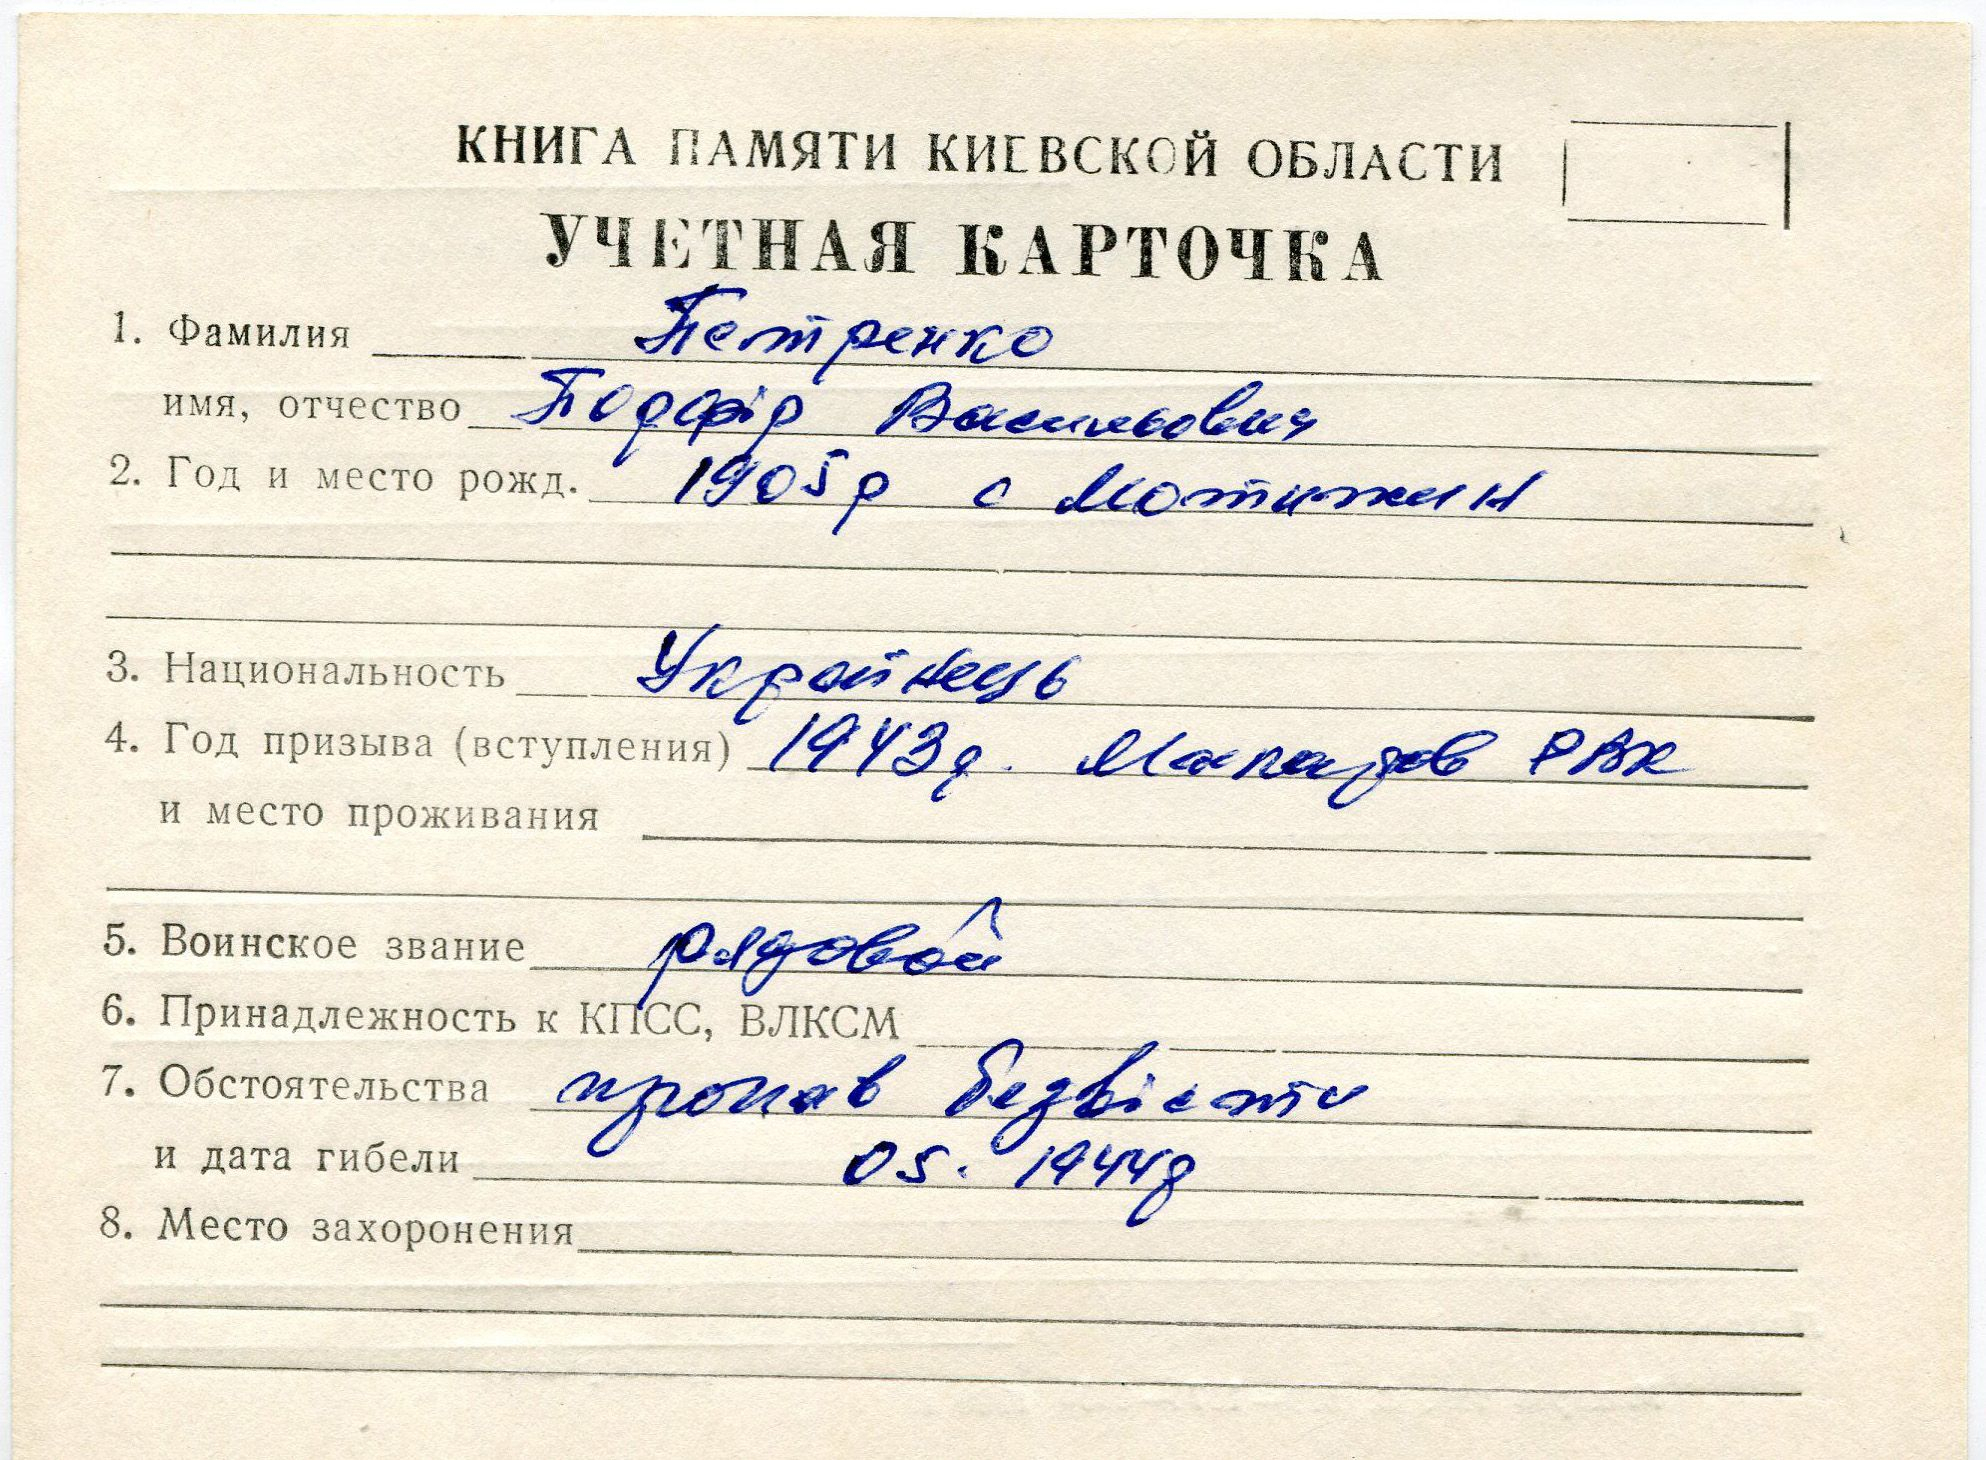 КНИГА ПАМЯТИ КИЕВСКОЙ ОБЛАСТИ
УЧЕТНАЯ КАРТОЧКА
1. Фамилия Петренко
имя, отчество Васильович
2. Год и место рожд. 1905р с Мотижин
3. Национальность Українець
4. Год призыва (вступления) 1943р. РВК
и место проживания
5. Воинское звание рядовой
6. Принадлежность к КПСС, ВЛКСМ
7. Обстоятельства пропав безвісти
и дата гибели 05. 1944р
8. Место захоронения